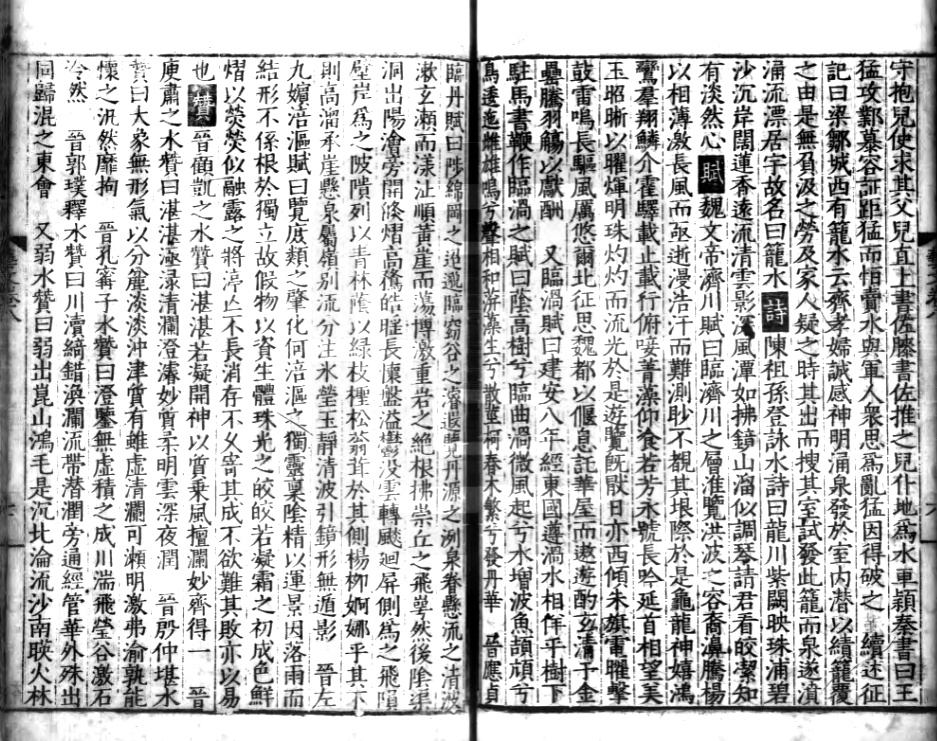 守抱兒使求其父兒直上書佐膝書佐推之兒仆地為水車穎秦書曰王
猛攻鄴慕容評距猛而怕賣水與軍人衆思為亂猛因得破之　續述征
記曰梁鄒城西有籠水云齊孝婦誠感神明涌泉發於室内潜以績籠覆
之由是無負汲之勞及家人疑之時其出而搜其室試發此籠而泉遂濆
涌流漂居字故名曰籠水　詩　陳祖孫登詠水詩曰龍川紫闕映珠浦碧
沙沉岸闊蓮香遠流清雲影深風潭如拂鏡山溜似調琴請君看皎潔知
有淡然心　賦　魏文帝濟川賦曰臨濟川之層淮覽洪波之容裔濞騰楊
以相薄激長風而亟逝漫浩汗而難測眇不覩其垠際於是龜龍神嬉鴻
鸞羣翔鱗介霍驛載止載行俯唼菁藻仰食若芳永號長吟延首相望美
玉昭晰以曜煇明珠灼灼而流光於是遊覽旣猒日亦西傾朱旗電曜擊
鼓雷鳴長驅風厲悠爾北征思魏都以偃息託華屋而遨遊酌玄清于金
罍騰羽觴以獻酬　又臨渦賦曰建安八年經東國遵渦水相佯乎樹下
駐馬書鞭作臨渦之賦曰蔭高樹兮臨曲渦微風起兮水增波魚頡頏兮
鳥逶迤雌雄鳴兮聲相和萍藻生兮散莖柯春木繁兮發丹華　晉應貞
臨丹賦曰陟綿岡之迢邈臨窈谷之濬遐覽丹源之冽泉眷懸流之清波
漱玄瀨而漾沚順黄崖而蕩博激重巖之絶根拂崇丘之飛崿然後陰渠
洞出陽澮旁開倏熠高騖皓脛長懷盤溢鬱没雲轉飈廻屏側為之飛隕
壁岸為之陂隤列以青林蔭以緑枝檉松蓊茸於其側楊柳婀娜乎其下
則高溜承崖懸泉屬嶺别流分注氷瑩玉靜清波引鏡形無遁影　晉左
九嬪涪漚賦曰覽庶類之肇化何涪漚之獨靈稟陰精以運景因落雨而
結形不係根於獨立故假物以資生體珠光之皎皎若凝霜之初成色鮮
熠以熒熒似融露之將渟亡不長消存不久寄其成不欲難其敗亦以易
也　贊　晉顧凱之水贊曰湛湛若凝開神以質乗風擅瀾妙齊得一　晉
庾肅之水贊曰湛湛涵渌清瀾澄濬妙質柔明雲深夜潤　晉殷仲堪水
贊曰大象無形氣以分麗淡淡沖津質有雖虚清瀾可瀨明激弗渝孰能
懷之汎然靡拘　晉孔甯子水贊曰澄鑒無虚積之成川湍飛瑩谷激石
泠然　晉郭璞釋水贊曰川瀆綺錯渙瀾流帶潜潤旁通經管華外殊出
同歸混之東會　又弱水贊曰弱出崑山鴻毛是沉北淪流沙南映火林